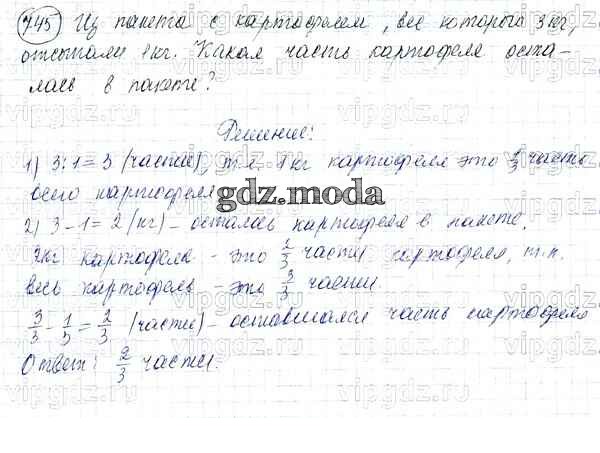 745 Из пакета с картофелем, вес которого 3 кг,
отсыпали 1 кг. Какая часть картофеля оста-
лась в пакете?
Решение:
1) 3:1=3 (части), т.е. 1 кг картофеля это 1/3 часть
всего картофеля
gdz.moda
2) 3-1=2 (кг) - осталось картофеля в пакете.
2кг картофеля - это 2/3 части картофеля, т.к.
весь картофель - это 3/3 части.
3/3 - 1/3 = 2/3 (части) - оставшаяся часть картофеля
Ответ: 2/3 части.